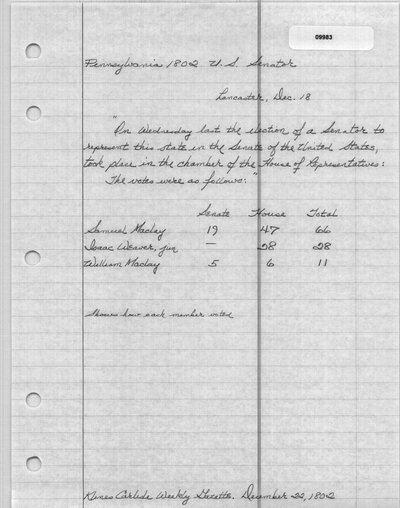 09983
Pennsylvania 1802 U.S. Senator
Lancaster, Dec. 18
"On Wednesday last the election of a Senator to
represent this state in the Senate of the United States,
took place in the chamber of the House of Representatives:
The votes were as follows:"
Senate House Total
Samuel Maclay 19 47 66
Isaac Weaver, jun — 28 28
William Maclay 5 6 11
Shows how each member voted
Klines Carlisle Weekly Gazette. December 22, 1802